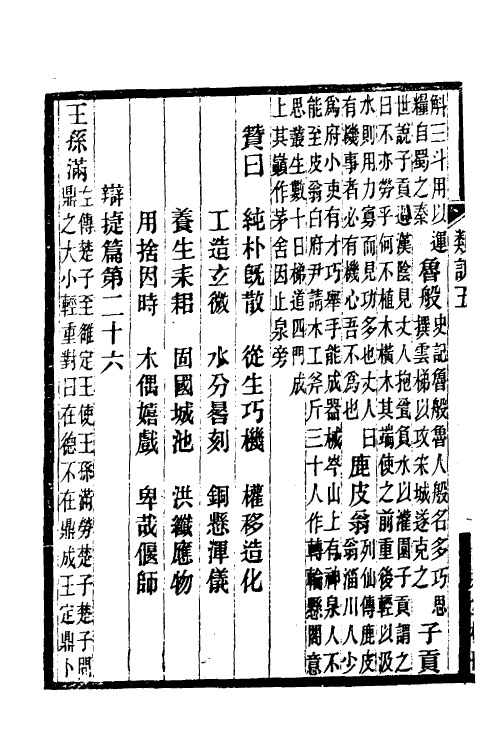 類說五
斛三斗用以運
糧自蜀之秦
魯般
史記魯般魯人般名多巧思
撰雲梯以攻宋城遂克之
子貢
世說子貢過漢陰見丈人抱甕負水以灌園子貢謂之
日不亦勞乎何不植木橫木其端使之前重後輕以汲
水則用力寡而見功多也丈人曰
有機事者必有機心吾不為也
鹿皮翁
列仙傳鹿皮
翁淄川人少
為府小吏有才巧舉手能成器械岑山上有神泉人不
能至皮翁白府尹請木工斧斤三十人作轉輪懸閣意
思叢生數十日梯道四門成
上其巔作茅舍因止泉旁
贊曰 純朴既散 從生巧機 權移造化
工造玄微 水分晷刻 銅懸渾儀
養生耒耜 固國城池 洪纖應物
用捨因時 木偶嬉戲 卑哉偃師
辯捷篇第二十六
王孫滿
左傳楚子至雒定王使王孫滿勞楚子楚子問
鼎之大小輕重對曰在德不在鼎成王定鼎卜